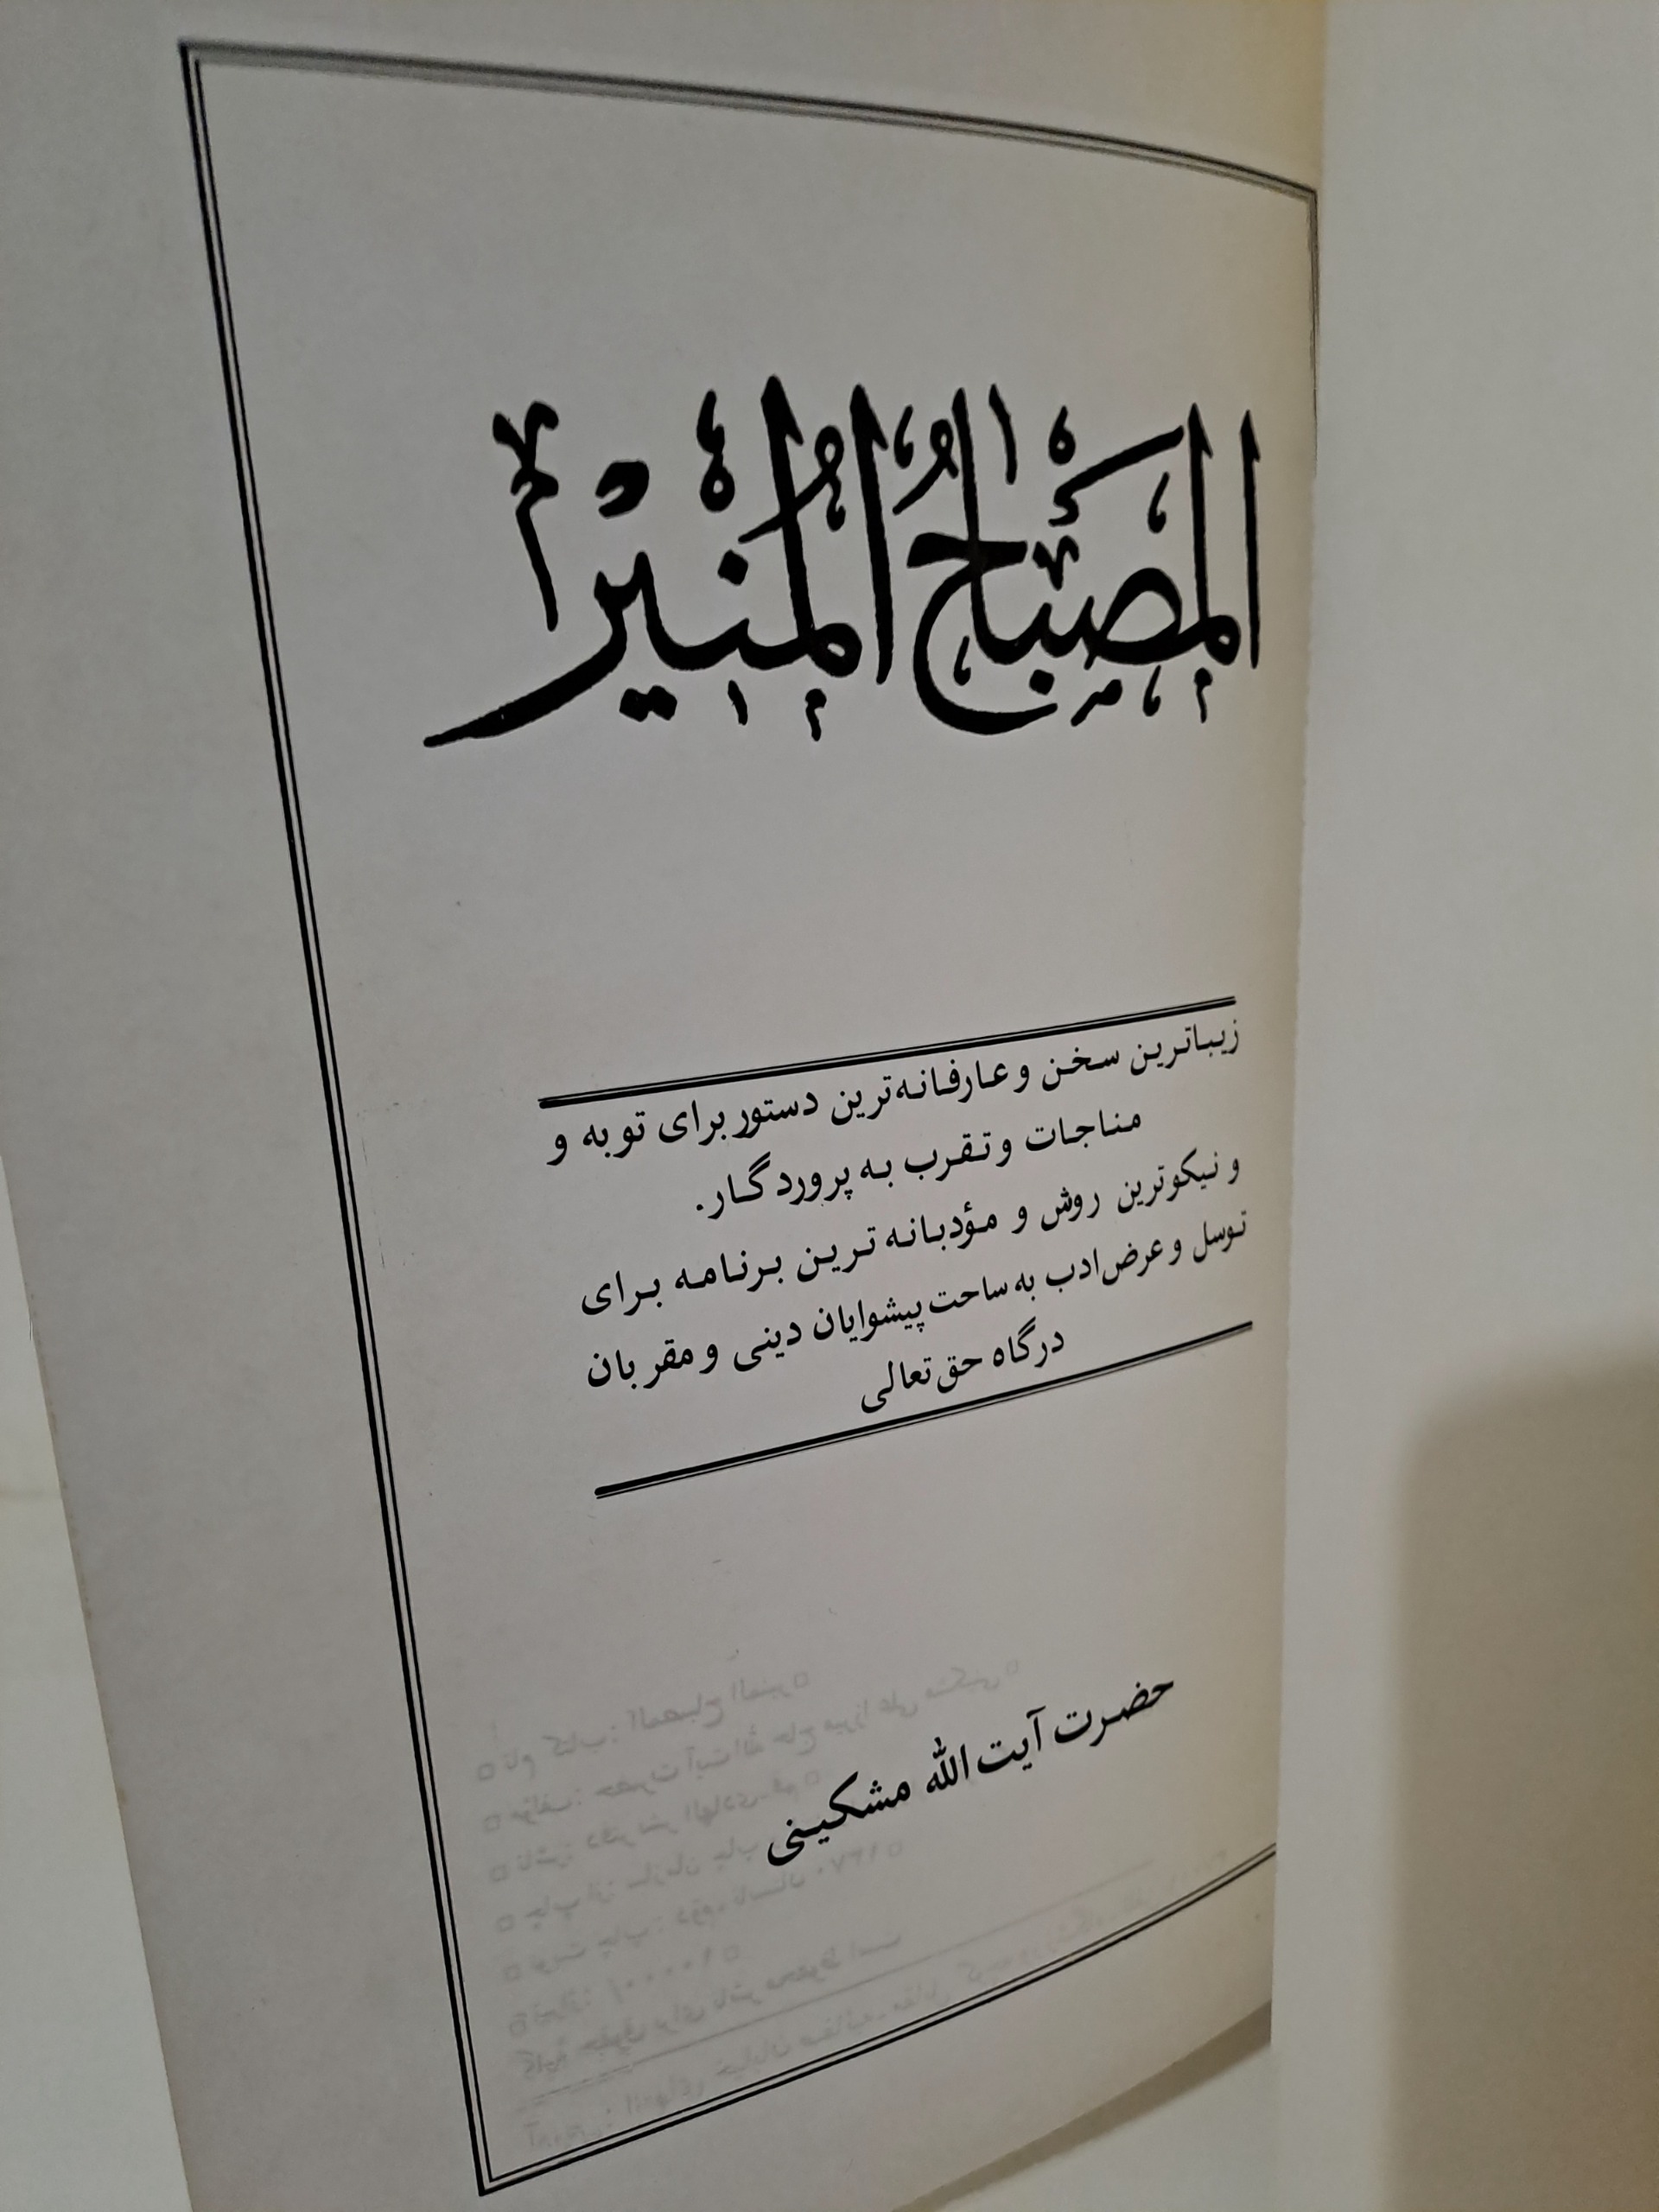 المصباح المنير
زیباترین سخن و عارفانه‌ترین دستور برای توبه و
مناجات و تقرب به پروردگار.
و نیکوترین روش و مؤدبانه ترین برنامه برای
توسل و عرض ادب به ساحت پیشوایان دینی و مقربان
درگاه حق تعالی
حضرت آیت الله مشکینی